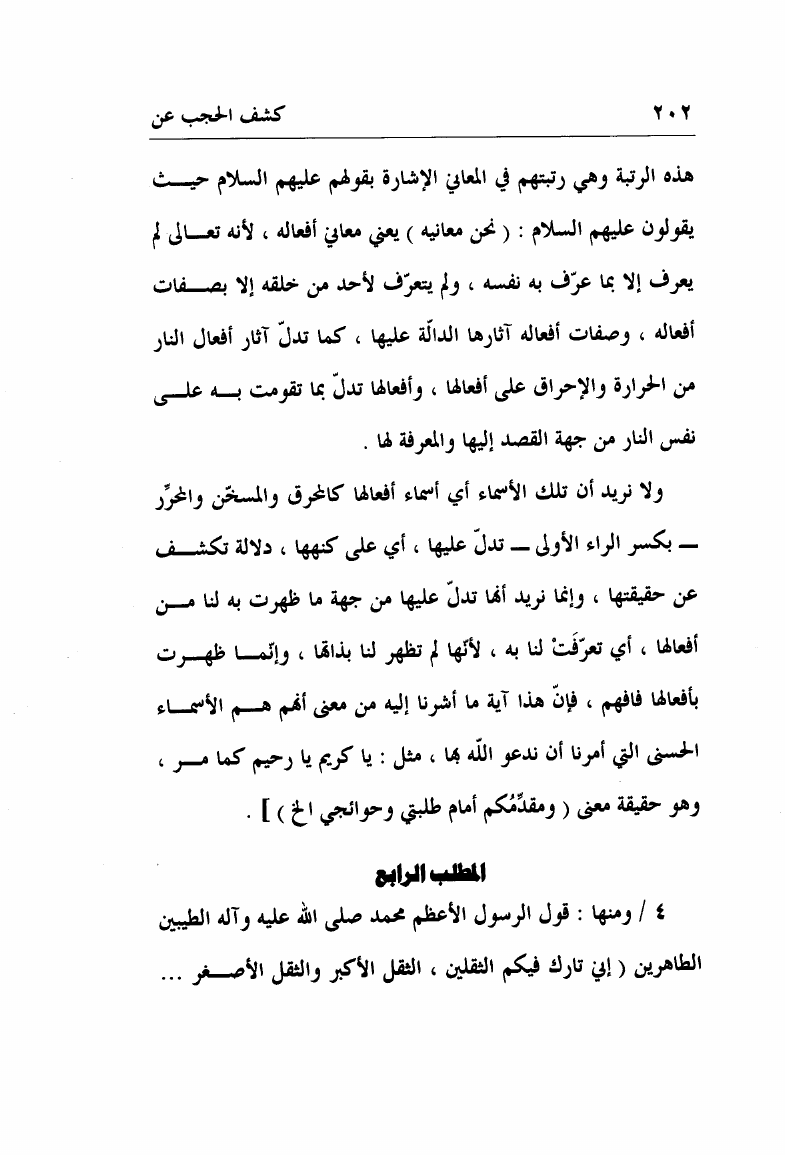 ٢٠٢ كشف الحجب عن
هذه الرتبة وهي رتبتهم في المعاني الإشارة بقولهم عليهم السلام حيث
يقولون عليهم السلام : ( نحن معانيه ) يعني معاني أفعاله ، لأنه تعالى لم
يعرف إلا بما عرّف به نفسه ، ولم يتعرّف لأحد من خلقه إلا بصفات
أفعاله ، وصفات أفعاله آثارها الدالّة عليها ، كما تدلّ آثار أفعال النار
من الحرارة والإحراق على أفعالها ، وأفعالها تدلّ بما تقومت به على
نفس النار من جهة القصد إليها والمعرفة لها .
ولا نريد أن تلك الأسماء أي أسماء أفعالها كالمحرق والمسخّن والمحرِّر
– بكسر الراء الأولى – تدلّ عليها ، أي على كنهها ، دلالة تكشف
عن حقيقتها ، وإنما نريد أنها تدلّ عليها من جهة ما ظهرت به لنا من
أفعالها ، أي تعرّفَتْ لنا به ، لأنّها لم تظهر لنا بذاتها ، وإنّما ظهرت
بأفعالها فافهم ، فإنّ هذا آية ما أشرنا إليه من معنى أنهم هم الأسماء
الحسنى التي أمرنا أن ندعو اللّه بها ، مثل : يا كريم يا رحيم كما مر ،
وهو حقيقة معنى ( ومقدِّمُكم أمام طلبتي وحوائجي الخ ) ] .
المطلب الرابع
٤ / ومنها : قول الرسول الأعظم محمد صلى الله عليه وآله الطيبين
الطاهرين ( إني تارك فيكم الثقلين ، الثقل الأكبر والثقل الأصغر ...